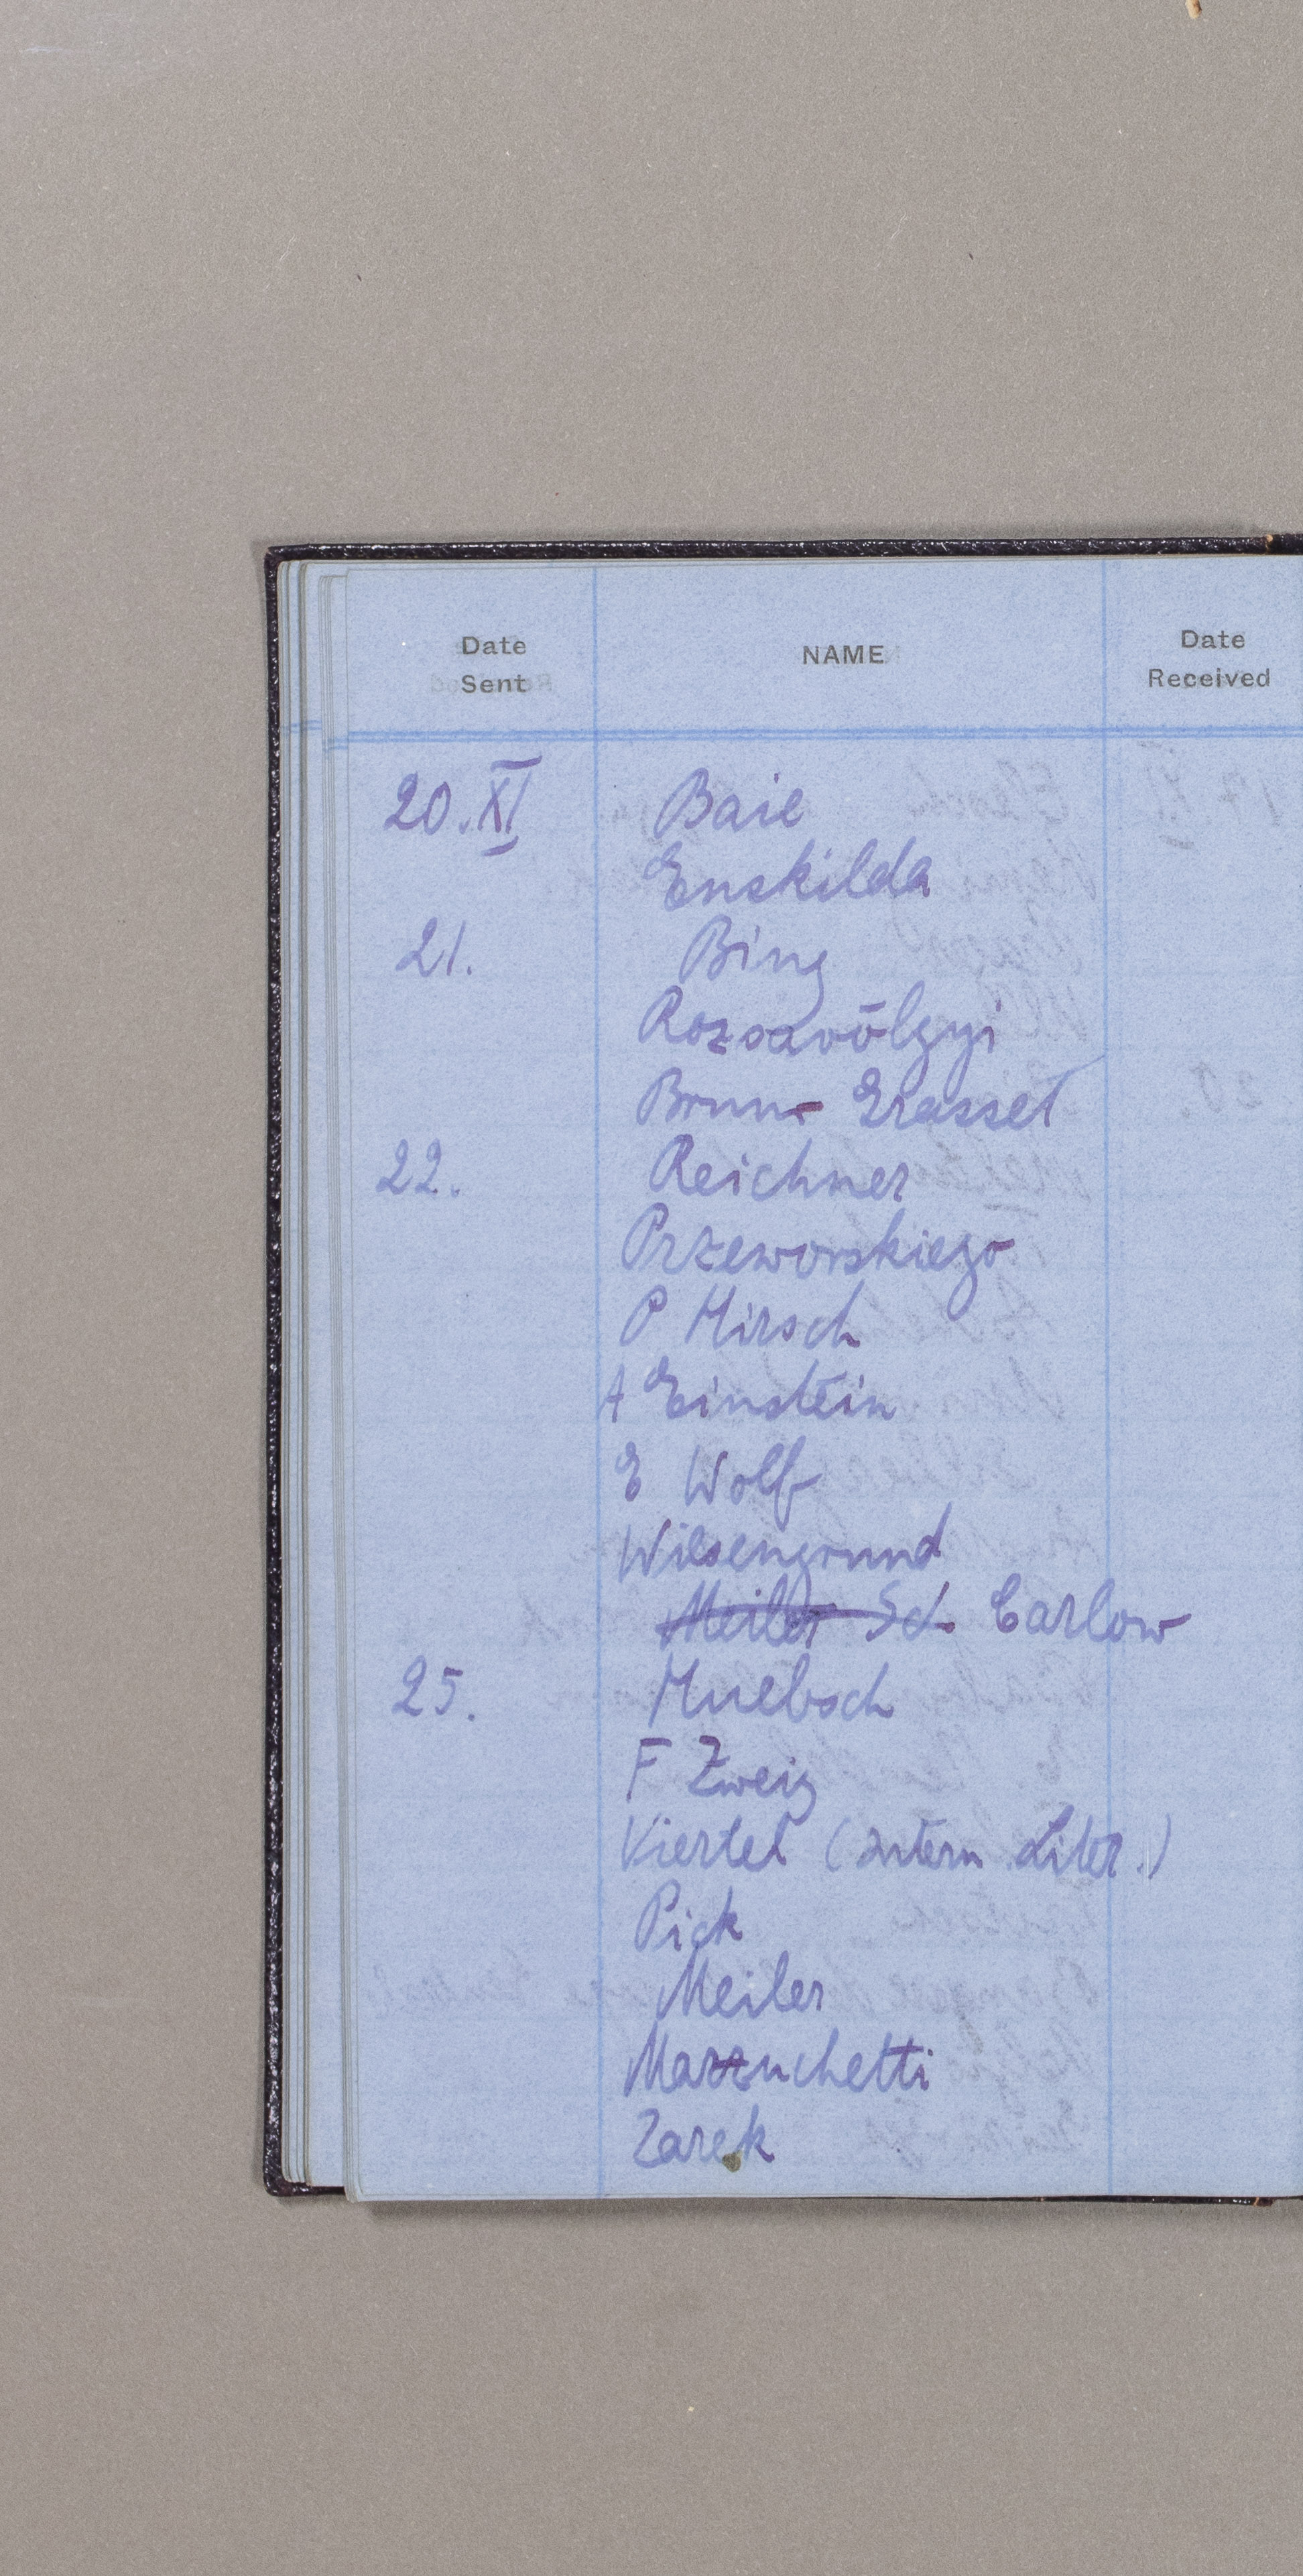 Date Sent NAME Date Received
20. XI Baie
Enskilda
21. Bing
Rozsavölgyi
Brun Grasset
22. Reichner
Przeworskiego
P Hirsch
A Einstein
E Wolff
Wiesengrund
Meiler Sch Carlow
25. Huebsch
F Zweig
Viertel (intern Liter.)
Pick
Meiler
Mazzuchetti
Zarek